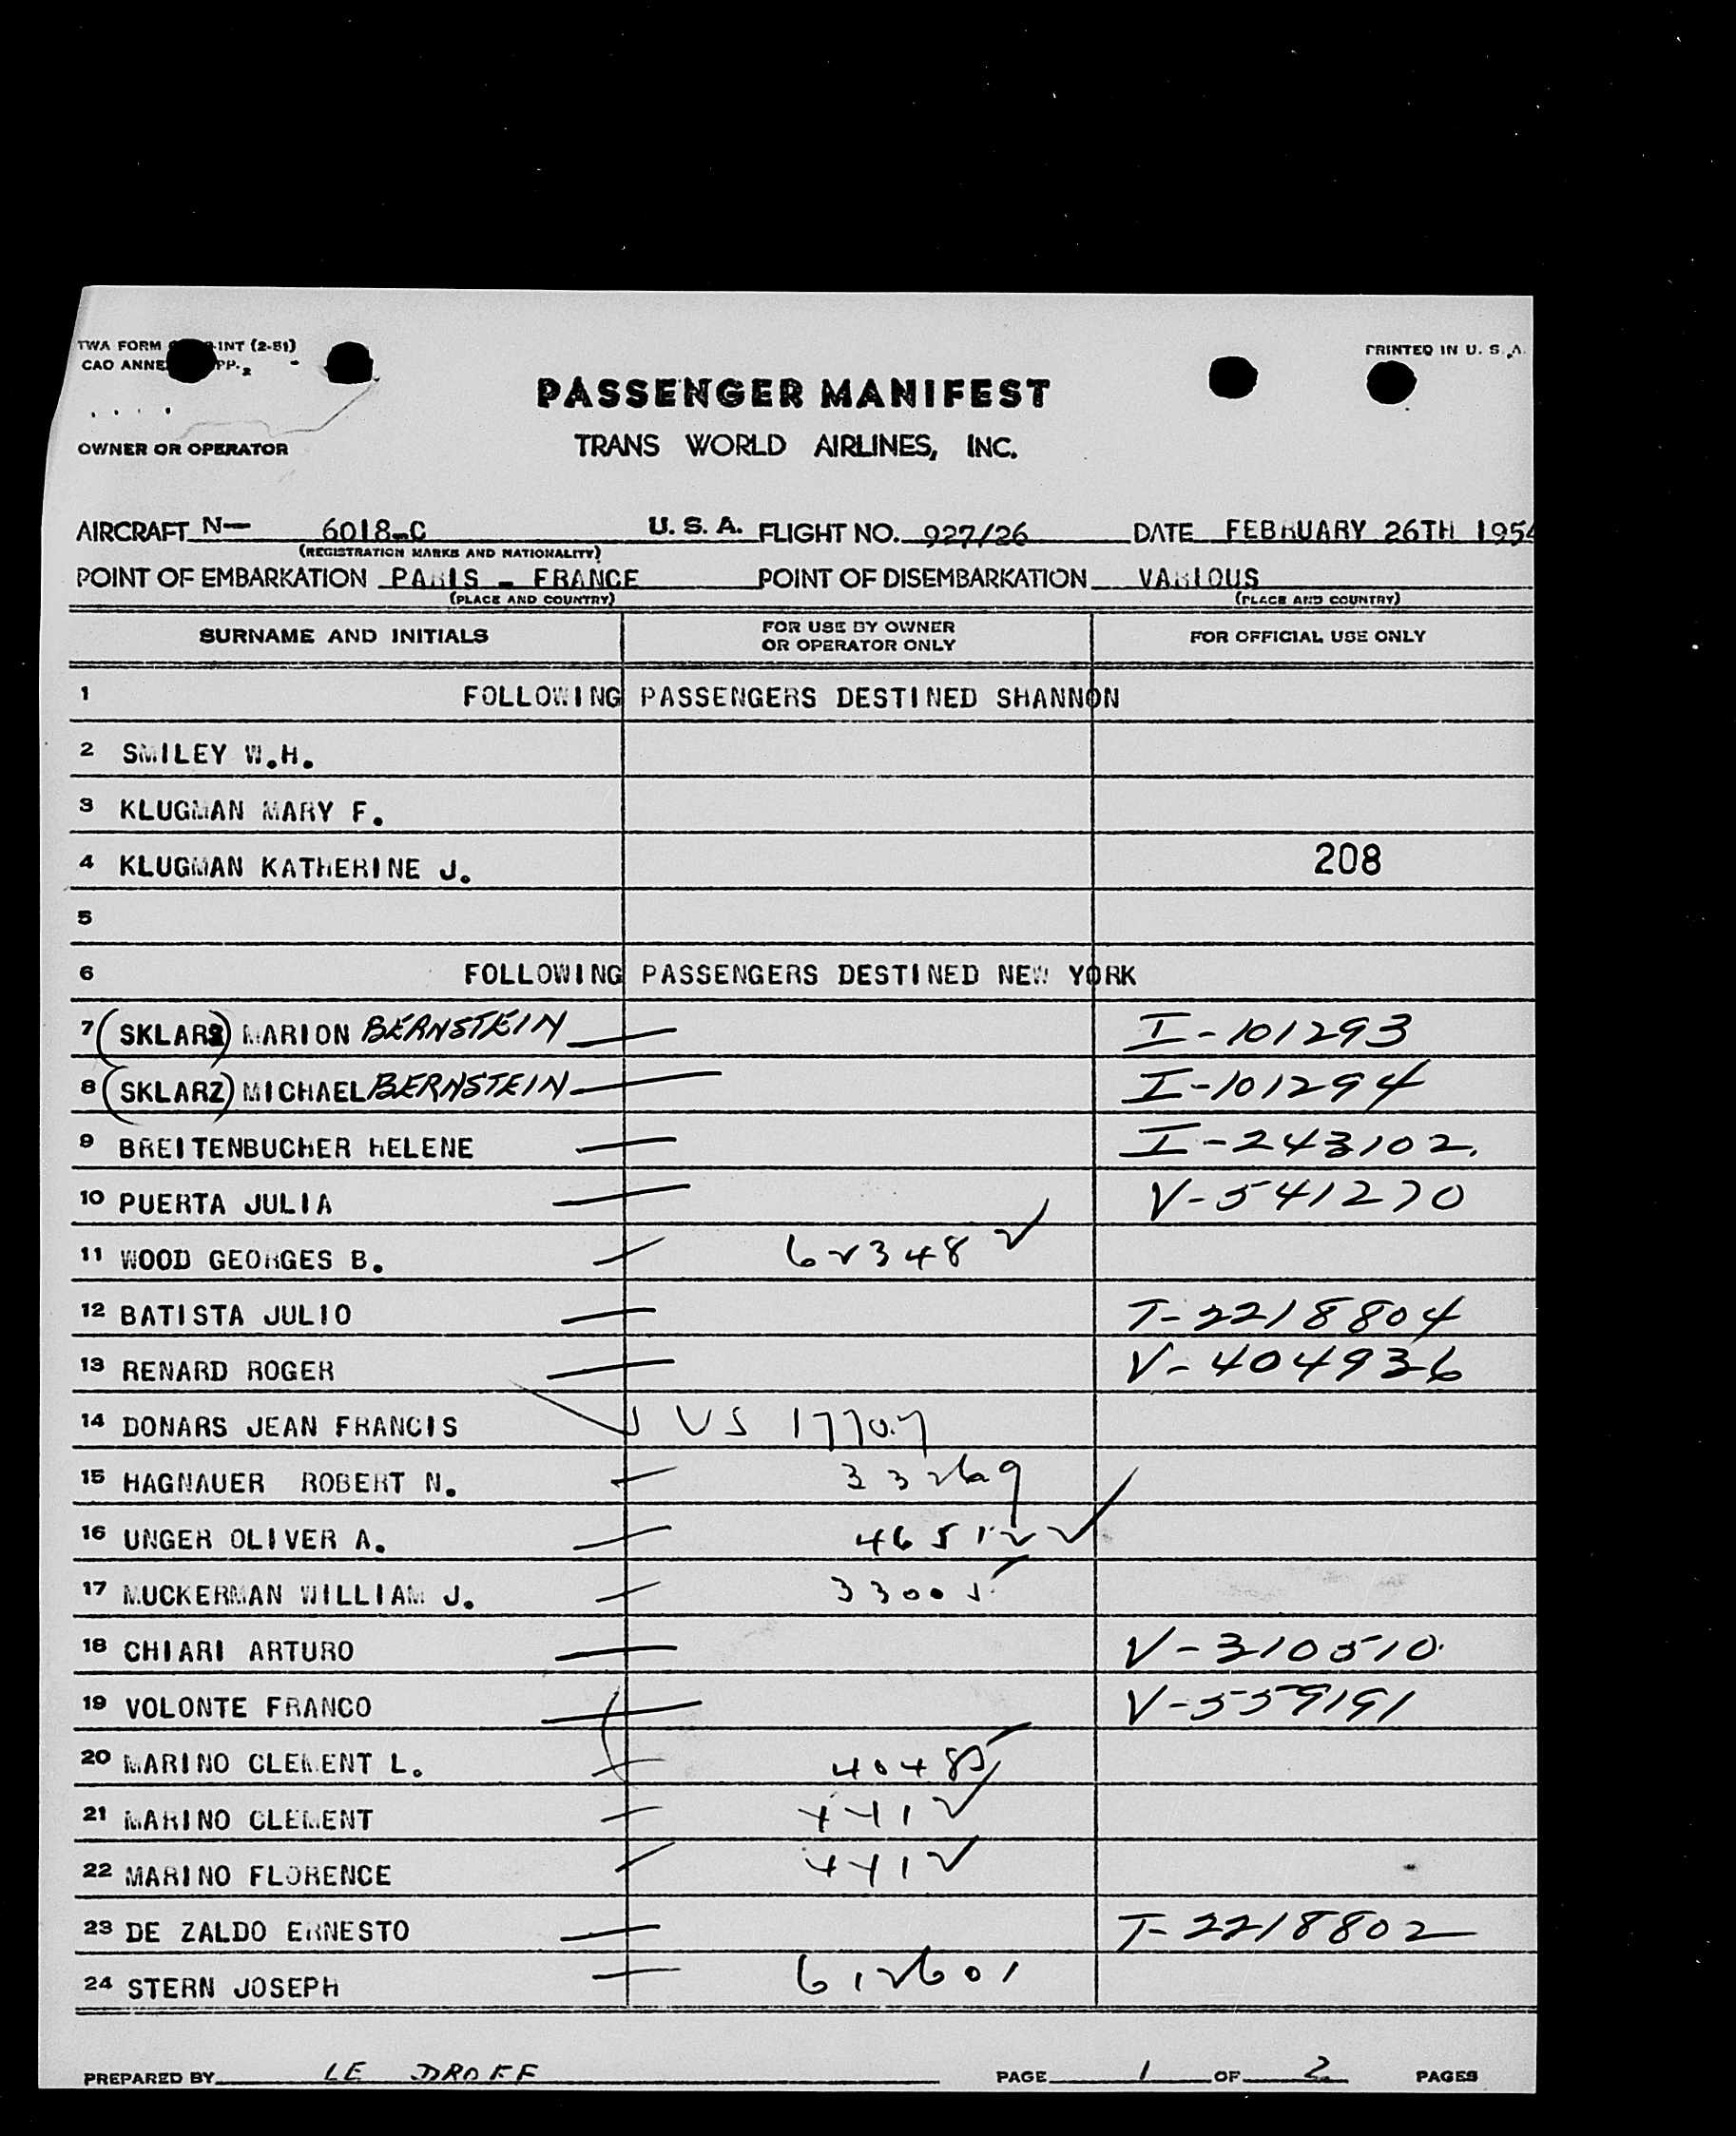 TWA FORM INT (2-51)
PRINTED IN U. S. A.
PASSENGER MANIFEST
OWNER OR OPERATOR
TRANS WORLD AIRLINES, INC.
AIRCRAFT N— 6018-C U. S. A. FLIGHT NO. 927/26 DATE FEBRUARY 26TH 1954
(REGISTRATION MARKS AND NATIONALITY)
POINT OF EMBARKATION PARIS - FRANCE POINT OF DISEMBARKATION VARIOUS
(PLACE AND COUNTRY) (PLACE AND COUNTRY)
SURNAME AND INITIALS FOR USE BY OWNER OR OPERATOR ONLY FOR OFFICIAL USE ONLY
1 FOLLOWING PASSENGERS DESTINED SHANNON
2 SMILEY W.H.
3 KLUGMAN MARY F.
4 KLUGMAN KATHERINE J. 208
5
6 FOLLOWING PASSENGERS DESTINED NEW YORK
7 (SKLARZ) MARION BERNSTEIN I-101293
8 (SKLARZ) MICHAEL BERNSTEIN I-101294
9 BREITENBUCHER HELENE I-243102
10 PUERTA JULIA V-541270
11 WOOD GEORGES B. 62348 ✓
12 BATISTA JULIO T-2218804
13 RENARD ROGER V-404936
14 DONARS JEAN FRANCIS US 17707
15 HAGNAUER ROBERT N.
16 UNGER OLIVER A. 46512 ✓
17 MUCKERMAN WILLIAM J. 33005
18 CHIARI ARTURO V-310510
19 VOLONTE FRANCO V-559191
20 MARINO CLEMENT L. 40485
21 MARINO CLEMENT
22 MARINO FLORENCE
23 DE ZALDO ERNESTO T-2218802
24 STERN JOSEPH 612601
PREPARED BY LE DROFF PAGE 1 OF 2 PAGES